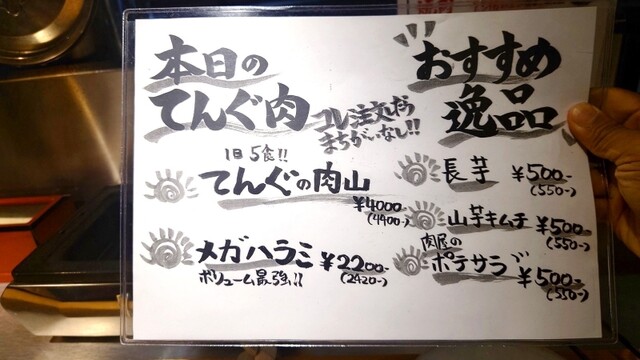 本日の
てんぐ肉
コレ注文したら
まちがいなし!!
1日5食!!
てんぐの肉山
¥4000-
(4400-)
メガハラミ ¥2200-
ボリューム最強!! (2420-)
おすすめ
逸品
長芋 ¥500-
(550-)
山芋キムチ ¥500-
(550-)
肉屋の
ポテサラ ¥500-
(550-)